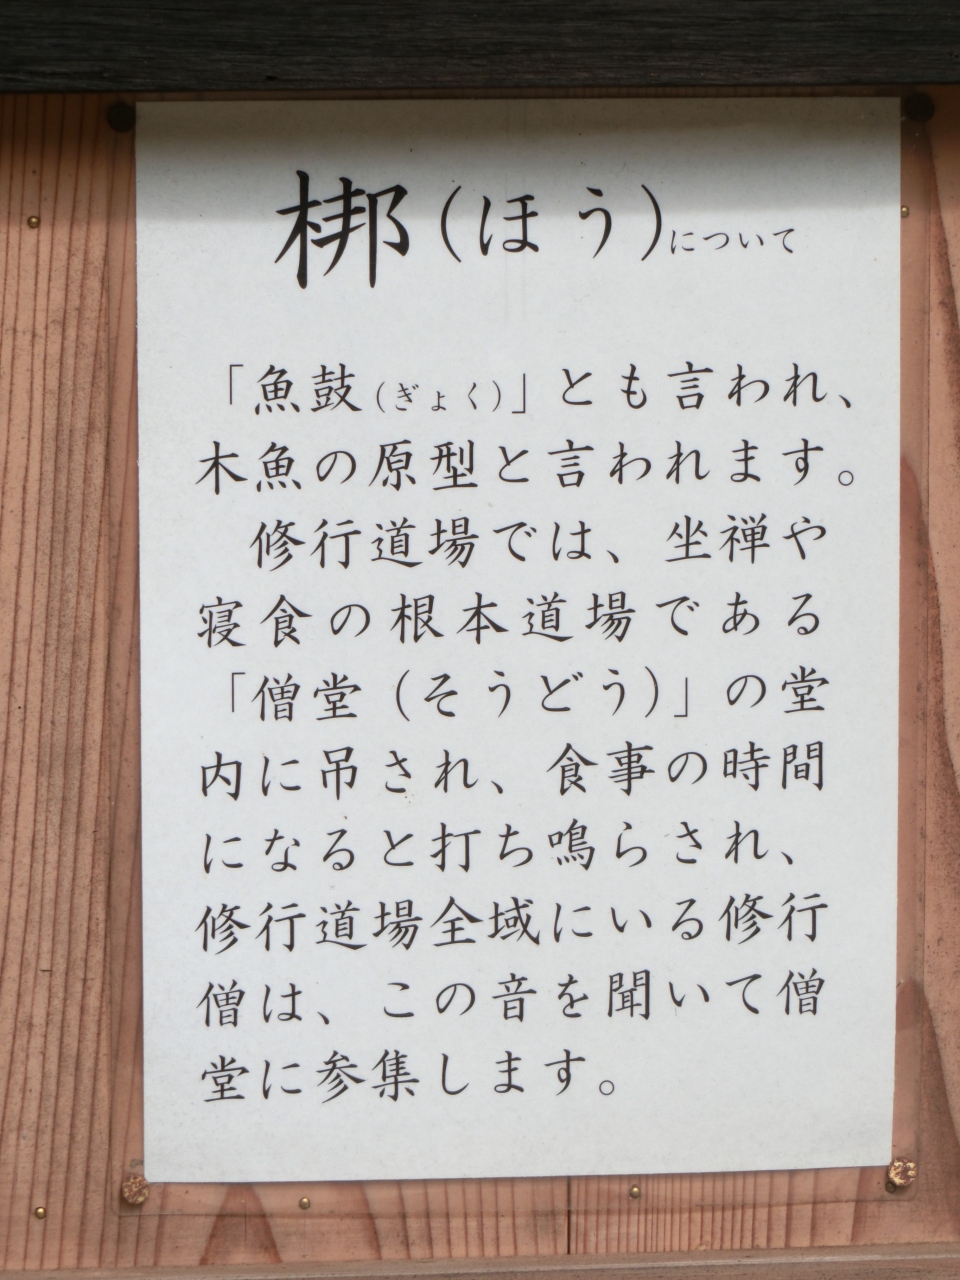 梆(ほう)について
「魚鼓(ぎょく)」とも言われ、
木魚の原型と言われます。
修行道場では、坐禅や
寝食の根本道場である
「僧堂(そうどう)」の堂
内に吊され、食事の時間
になると打ち鳴らされ、
修行道場全域にいる修行
僧は、この音を聞いて僧
堂に参集します。